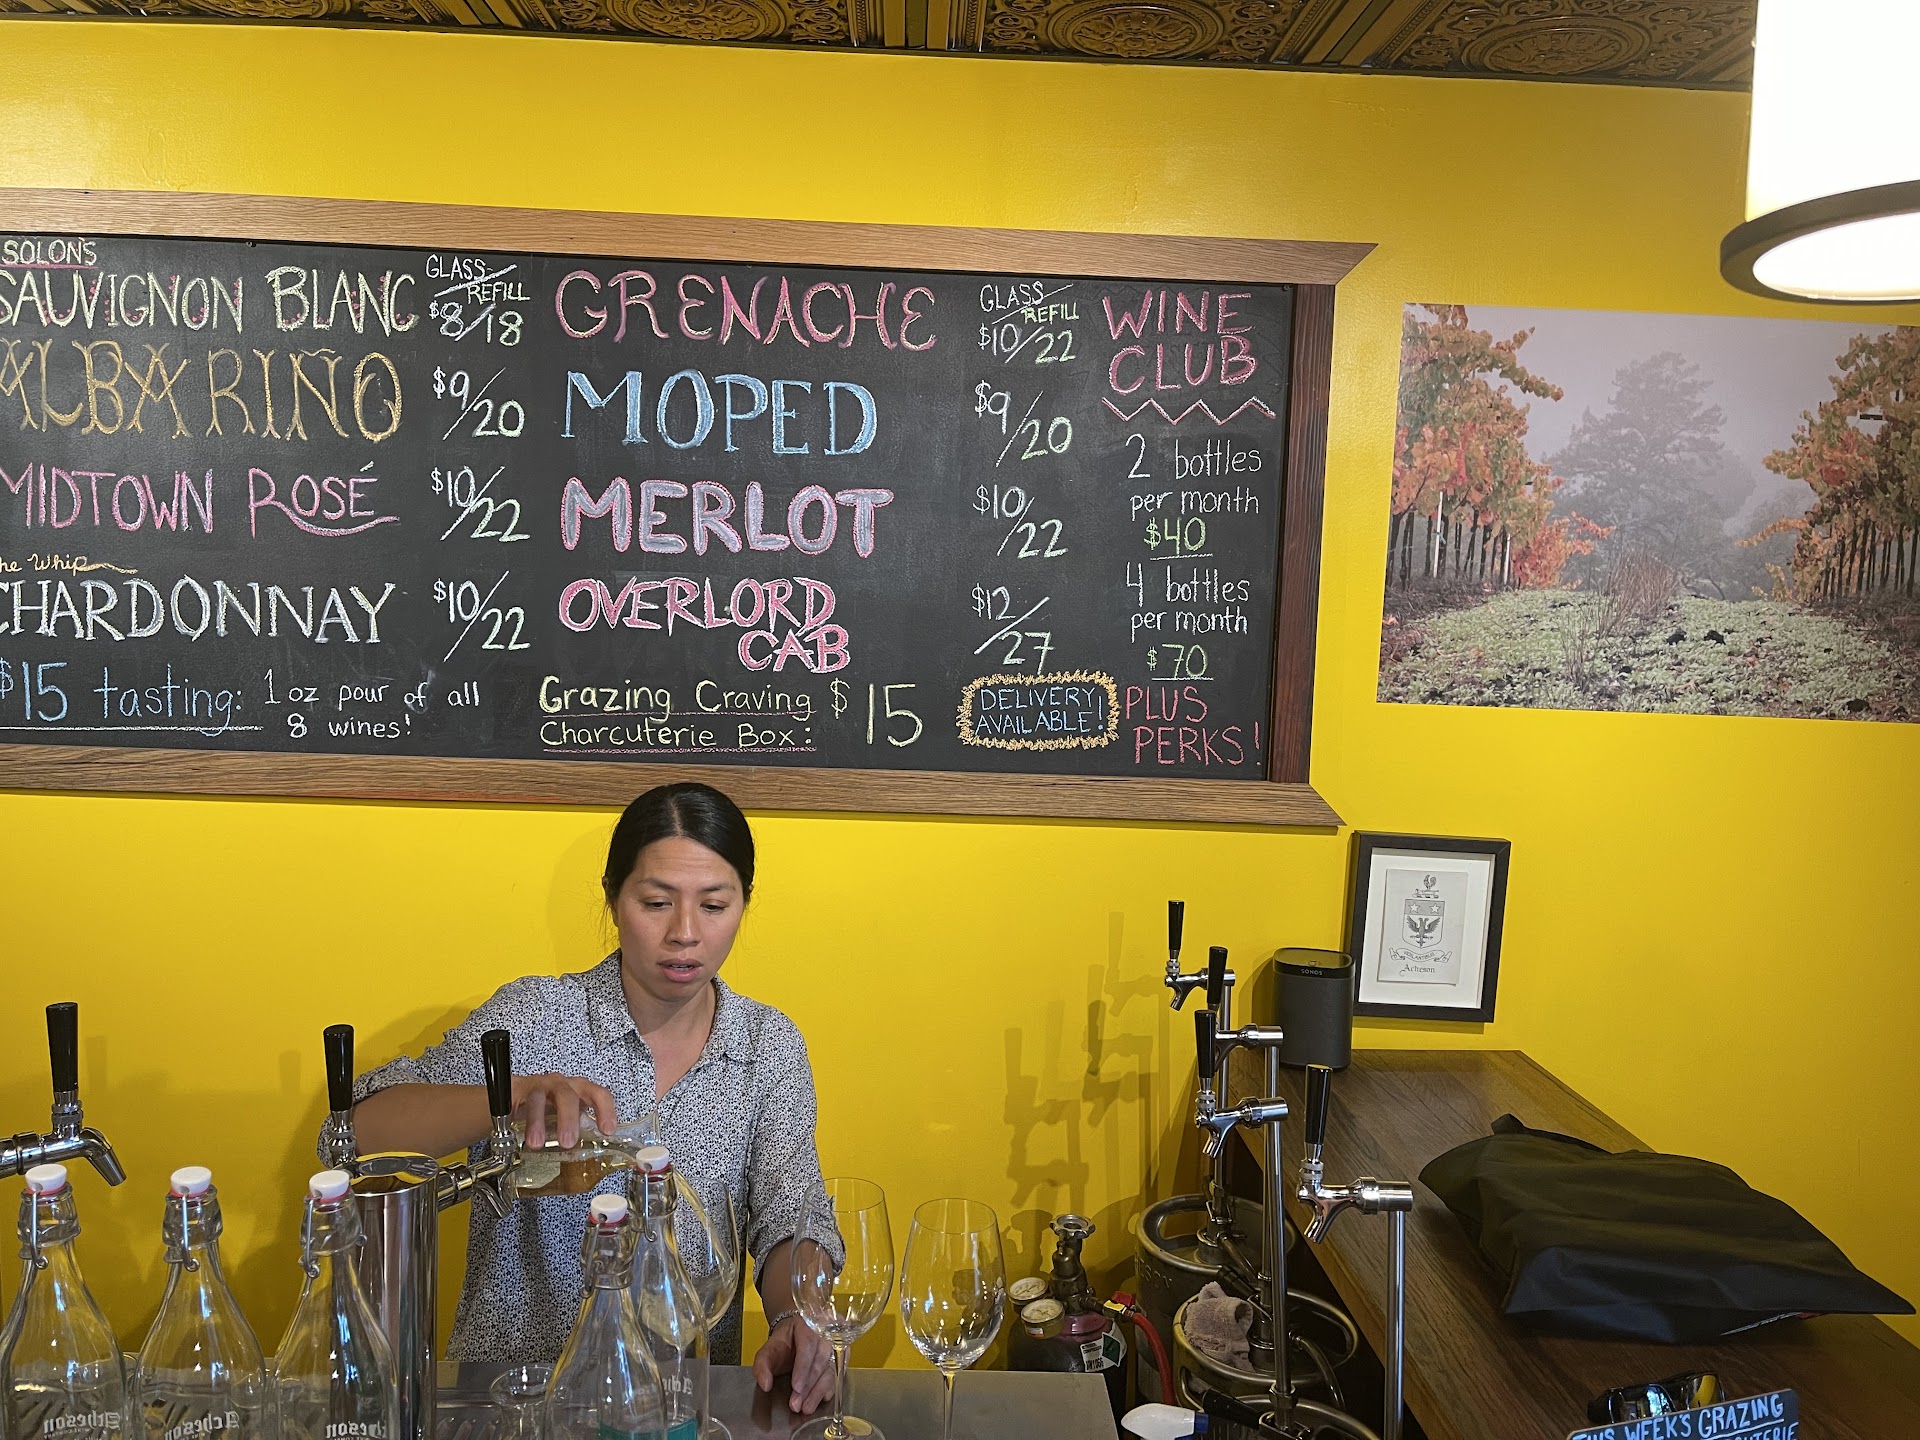 SOLON'S
SAUVIGNON BLANC
GLASS/REFILL
$8/18
ALBARIÑO
$9/20
MIDTOWN ROSÉ
$10/22
The Whip
CHARDONNAY
$10/22
$15 tasting: 1 oz pour of all
8 wines!
GRENACHE
GLASS/REFILL
$10/22
MOPED
$9/20
MERLOT
$10/22
OVERLORD
CAB
$12/27
Grazing Craving
Charcuterie Box: $15
DELIVERY
AVAILABLE!
WINE
CLUB
2 bottles
per month
$40
4 bottles
per month
$70
PLUS
PERKS!
SONOS
Acheson
Acheson
Acheson
Acheson
THIS WEEK'S GRAZING